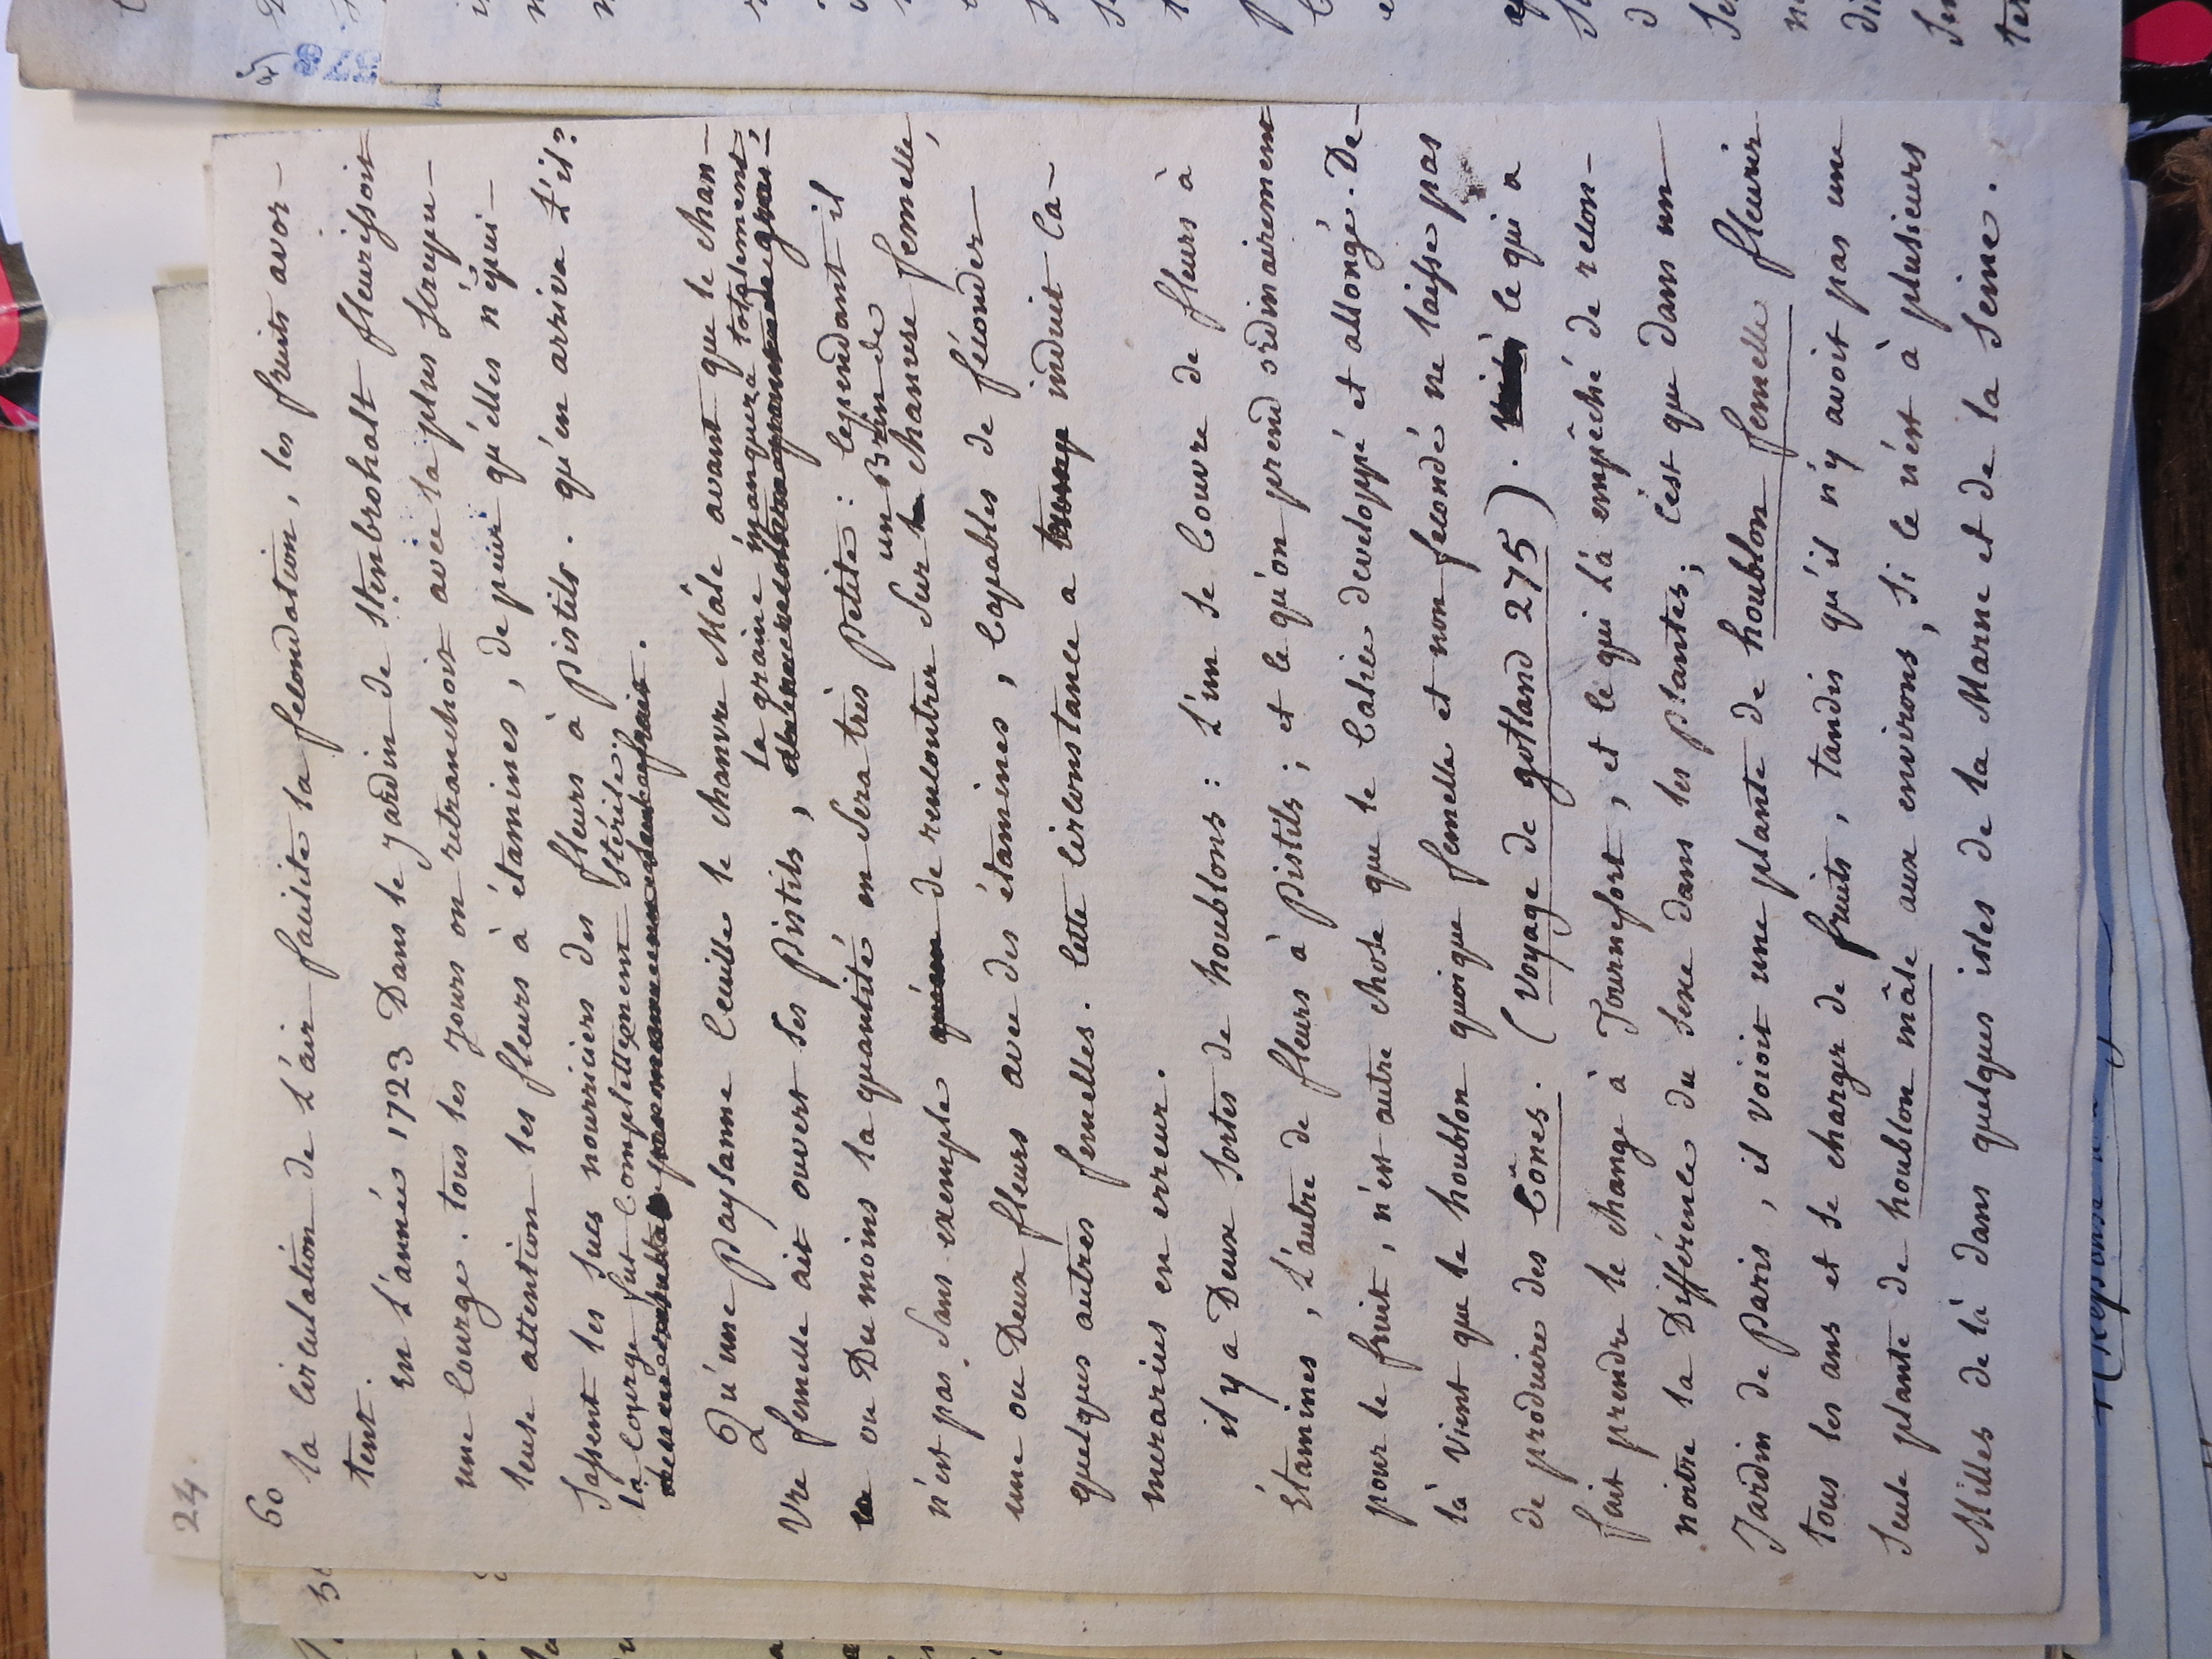 24.
60
la circulation de l'air facilite la fecondation, les fruits avor-
tent.
En l'année 1723 Dans le jardin de stenbrohalt fleurissoit
une Courge. tous les jours on retranchoit avec la plus scrupu-
leuse attention les fleurs à étamines, de peur qu'elles n'épui-
sassent les sucs nourriciers des fleurs à pistils. qu'en arriva t'il?
la courge fut complettement stérile.
Qu'une paysanne Cueille le chanvre Mâle avant que le chan-
vre femelle ait ouvert ses pistils, la graine manquera totalement,
ou Du moins la quantité en sera très petite: cependant il
n'est pas sans exemple de rencontrer sur un Brin de chanvre femelle,
une ou Deux fleurs avec des étamines, Capables de féconder
quelques autres femelles. cette circonstance a induit Ca-
merarius en erreur.
il y a Deux sortes de houblons: l'un se Couvre de fleurs à
étamines, l'autre de fleurs à pistils; et ce qu'on prend ordinairement
pour le fruit, n'est autre chose que le Calice developpé et allongé. De-
là vient que le houblon quoique femelle et non fecondé ne laisse pas
de produire des Cônes. (Voyage de gotland 275). ce qui a
fait prendre le change à Tournefort, et ce qui l'a empêché de recon-
noitre la Différence du sexe dans les plantes; c'est que dans un
Jardin de Paris, il voioit une plante de houblon femelle fleurir
tous les ans et se charger de fruits, tandis qu'il n'y avoit pas une
seule plante de houblon mâle aux environs, si ce n'est à plusieurs
Milles de là dans quelques isles de la Marne et de la Seine.